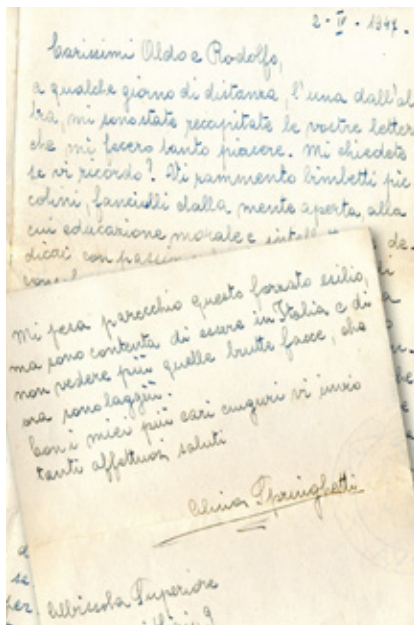 2 - IV - 1947.
Carissimi Aldo e Rodolfo,
a qualche giorno di distanza, l'una dall'al
tra, mi sono state recapitate le vostre letter
che mi fecero tanto piacere. Mi chiedete
se vi ricordo? Vi rammento bimbetti pic
colini, fanciulli dalla mente aperta, alla
cui educazione morale e de-
dicai con
Mi pesa parecchio questo forzato esilio,
ma sono contenta di essere in Italia e di
non vedere più quelle brutte facce, che
ora sono laggiù.
Con i miei più cari auguri vi invio
tanti affettuosi saluti
Springhetti
Albissola Superiore